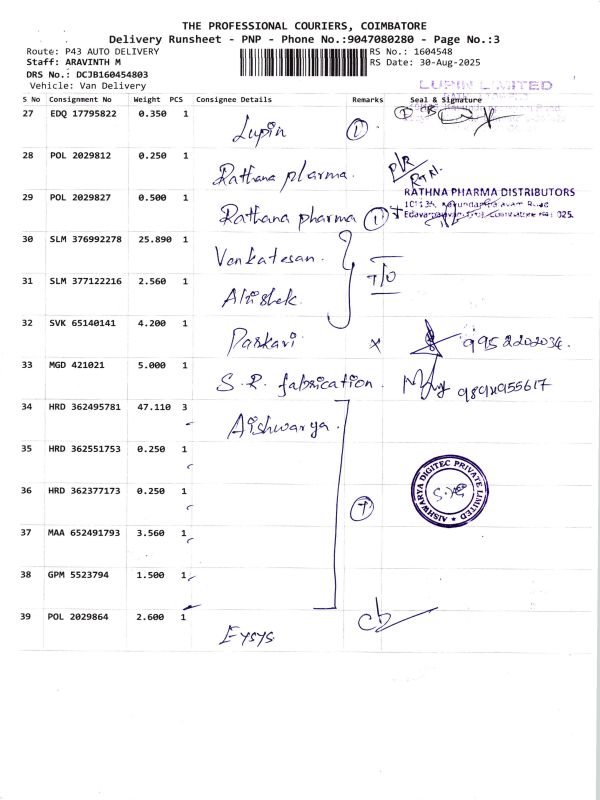 THE PROFESSIONAL COURIERS, COIMBATORE
Delivery Runsheet - PNP - Phone No.:9047080280 - Page No.:3
Route: P43 AUTO DELIVERY RS No.: 1604548
Staff: ARAVINTH M RS Date: 30-Aug-2025
DRS No.: DCJB160454803
Vehicle: Van Delivery
LUPIN LIMITED
S No Consignment No Weight PCS Consignee Details Remarks Seal & Signature
27 EDQ 17795822 0.350 1 Lupin 1
28 POL 2029812 0.250 1 Rathana pharma.
29 POL 2029827 0.500 1 Rathana pharma 1
RATHNA PHARMA DISTRIBUTORS
30 SLM 376992278 25.890 1 Venkatesan. T/O
31 SLM 377122216 2.560 1 Abishek.
32 SVK 65140141 4.200 1 x 9952202034.
33 MGD 421021 5.000 1 S.R. fabrication.
34 HRD 362495781 47.110 3 Aishwarya.
35 HRD 362551753 0.250 1
36 HRD 362377173 0.250 1
AISHWARYA DIGITEC PRIVATE LIMITED
37 MAA 652491793 3.560 1
38 GPM 5523794 1.500 1
39 POL 2029864 2.600 1 Eysys